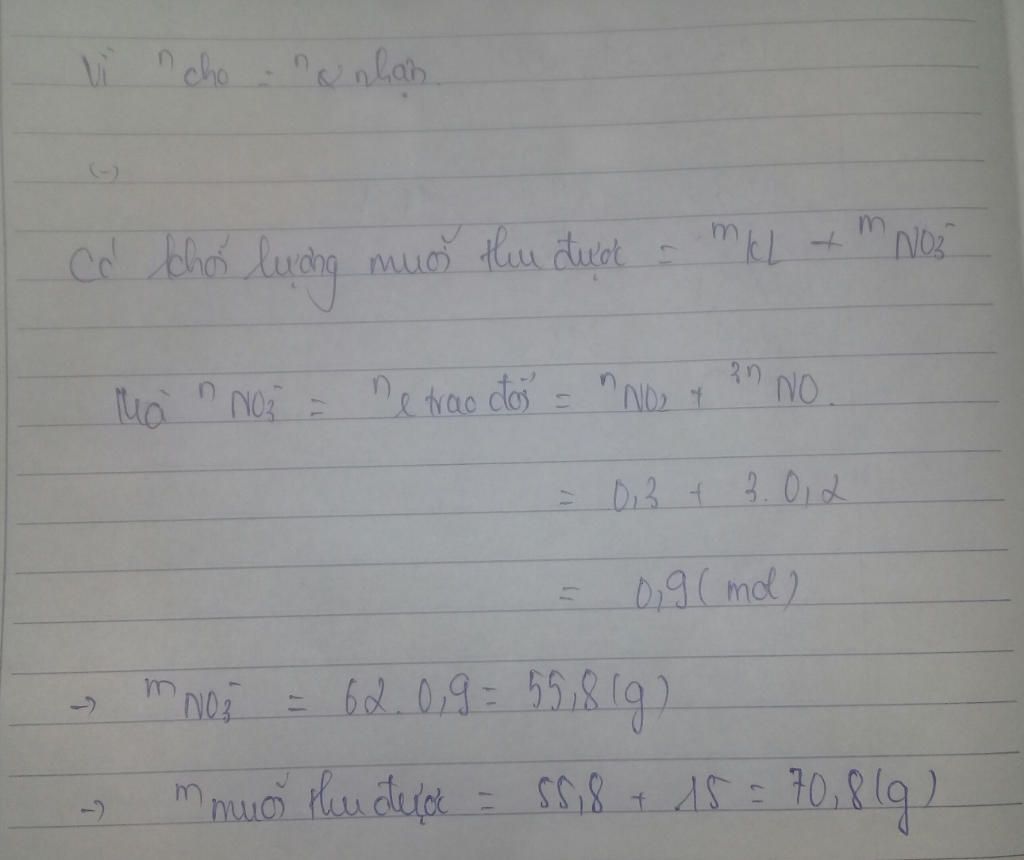 Vì n cho = n e nhận.
(-)
Có khối lượng muối thu được = mKL + mNO3-
Mà nNO3- = n e trao đổi = nNO2 + 3nNO.
= 0,3 + 3.0,2
= 0,9 (mol)
-> mNO3- = 62.0,9 = 55,8 (g)
-> m muối thu được = 55,8 + 15 = 70,8 (g)